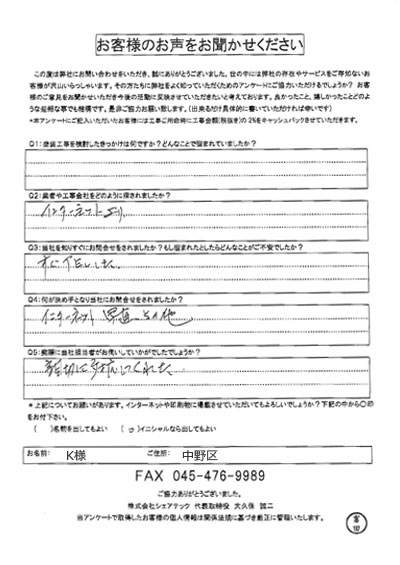 お客様のお声をお聞かせください
この度は弊社にお問い合わせをいただき、誠にありがとうございました。世の中には弊社の存在やサービスをご存知ないお
客様が沢山いらっしゃいます。その方たちに弊社をよく知っていただくためのアンケートにご協力いただけるでしょうか？ お客
様のご意見をお聞かせいただき今後の活動に反映させていただきたいと考えております。良かったこと、嬉しかったことどのよ
うな些細な事でも結構です。是非ご協力お願い致します。(出来るだけ具体的に書いていただければ幸いです)
*本アンケートにご記入いただいたお客様には工事ご用命時に工事金額(税抜き)の2%をキャッシュバックさせていただきます。
Q1:塗装工事を検討したきっかけは何ですか？どんなことで悩まれていましたか？
Q2:業者や工事会社をどのように探されましたか？
インターネットより
Q3:当社を知りすぐにお問合せをされましたか？もし悩まれたとしたらどんなことがご不安でしたか？
すぐに
Q4:何が決め手となり当社にお問合せをされましたか？
インターネット
Q5:実際に当社担当者がお伺いしていかがでしたでしょうか？
親切に対応してくれた
*上記についてお願いがあります。インターネットや印刷物に掲載させていただいてもよろしいでしょうか？下記の中から〇印
をお付下さい。
( )名前を出してもよい (○)イニシャルなら出してもよい
お名前: K様 ご住所: 中野区
FAX 045-476-9989
ご協力ありがとうございました。
株式会社シェアテック 代表取締役 大久保 誠二
当アンケートで取得したお客様の個人情報は関係法規に基づき厳正に管理いたします。